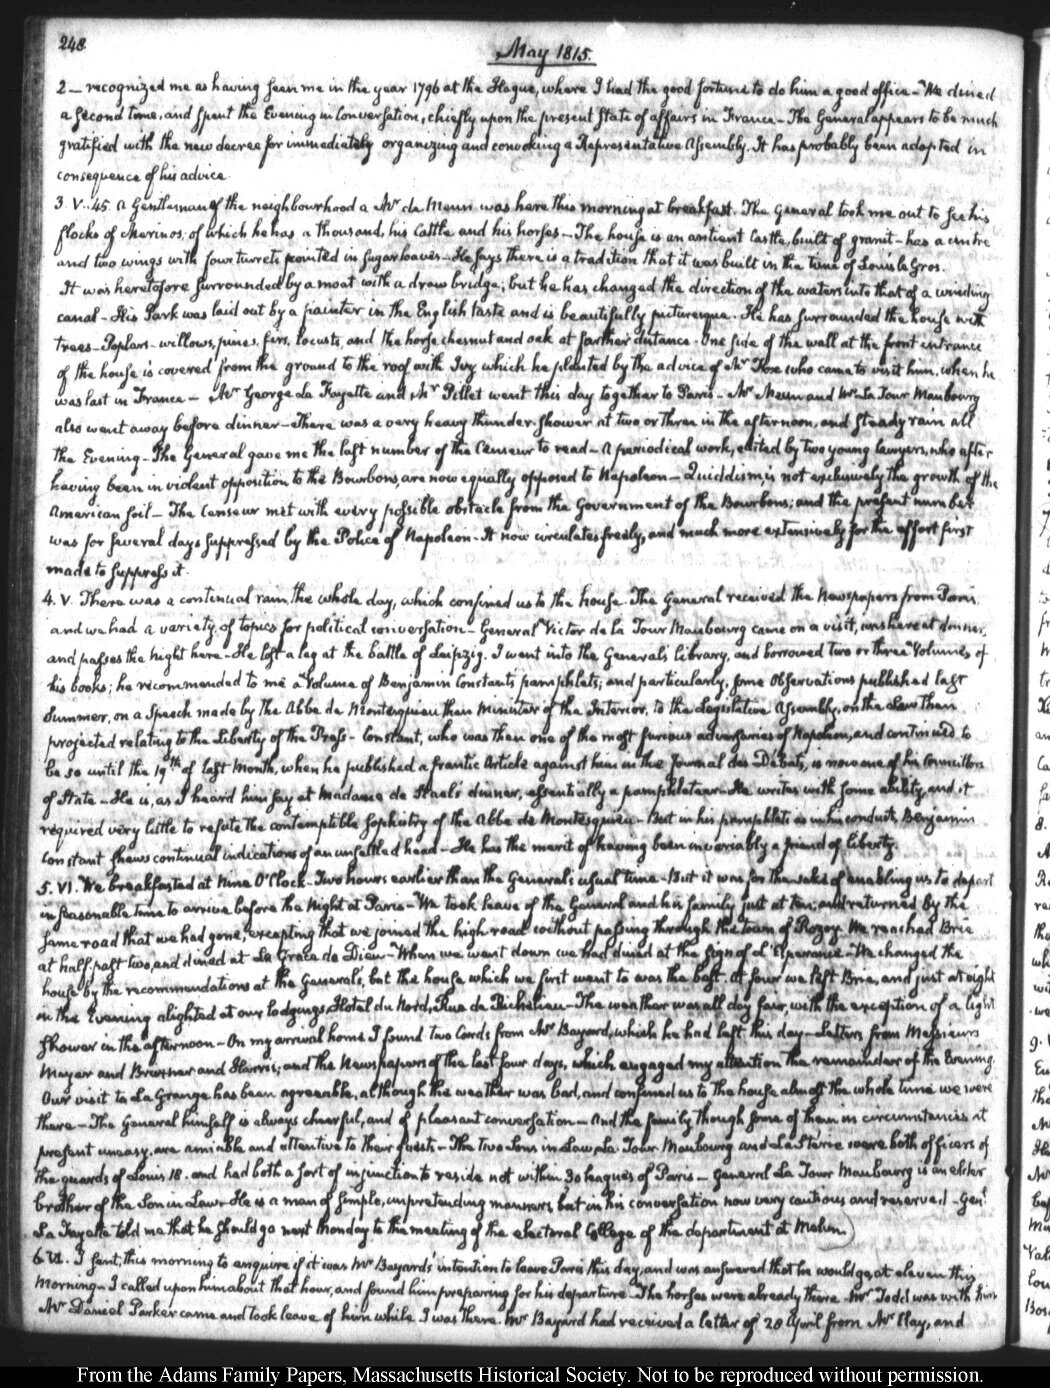 248
May 1815.
2 — recognized me as having seen me in the year 1796 at the Hague, where I had the good fortune to do him a good office — We dined
a second time, and spent the Evening in Conversation, chiefly upon the present State of affairs in France — The General appears to be much
gratified with the new decree for immediately organizing and convoking a Representative Assembly. It has probably been adopted in
consequence of his advice.
3. V:45. A Gentleman of the neighbourhood a Mr de Meun was here this morning at breakfast. The General took me out to see his
flocks of Merinos, of which he has a thousand, his Cattle and his horses — The house is an antient Castle, built of granit — has a centre
and two wings with four turrets pointed in sugar loaves — He says there is a tradition that it was built in the time of Louis le Gros.
It was heretofore surrounded by a moat with a draw bridge; but he has changed the direction of the waters into that of a winding
canal — His Park was laid out by a painter in the English taste and is beautifully picturesque. He has surrounded the house with
trees — Poplars — willows, pines, firs, locusts, and the horse chesnut and oak at farther distance — One side of the wall at the front entrance
of the house is covered from the ground to the roof with Ivy which he planted by the advice of Mr Fox who came to visit him, when he
was last in France — Mr George La Fayette and Mr Pillet went this day together to Paris — Mr Meun and Mr La Tour Maubourg
also went away before dinner — There was a very heavy thunder-shower at two or three in the afternoon, and steady rain all
the Evening — The General gave me the last number of the Censeur to read — a periodical work, edited by two young lawyers, who after
having been in violent opposition to the Bourbons, are now equally opposed to Napoleon — Quiddism is not exclusively the growth of the
American soil — The Censeur met with every possible obstacle from the Government of the Bourbons; and the present number
was for several days suppressed by the Police of Napoleon — It now circulates freely, and much more extensively for the effort first
made to suppress it.
4. V. There was a continual rain, the whole day, which confined us to the house. The General received the Newspapers from Paris
and we had a variety of topics for political conversation — General Victor de la Tour Maubourg came on a visit, was here at dinner,
and passes the night here — He lost a leg at the battle of Leipzig. I went into the General's Library, and borrowed two or three Volumes of
his books; he recommended to me a Volume of Benjamin Constant's pamphlets; and particularly, some Observations published last
Summer, on a Speech made by the Abbé de Montesquieu then Minister of the Interior, to the Legislative Assembly, on the Law then
projected relating to the Liberty of the Press — Constant, who was then one of the most furious adversaries of Napoleon, and continued to
be so until the 19th of last Month, when he published a frantic Article against him in the Journal des Débats, is now one of his Counsellors
of State — He is, as I heard him say at Madame de Stael's dinner, essentially a pamphleteer — He writes with some ability, and it
required very little to refute the contemptible sophistry of the Abbé de Montesquieu — But in his pamphlets as in his conduct, Benjamin
Constant shews continual indications of an unsettled head — He has the merit of having been invariably a friend of liberty.
5. VI. We breakfasted at Nine O'Clock — Two hours earlier than the General's usual time — But it was for the sake of enabling us to depart
in seasonable time to arrive before the Night at Paris — We took leave of the General and his family just at ten; and returned by the
same road that we had gone, excepting that we joined the high road without passing through the town of Rozoy. We reached Brie
at half past two, and dined at La Grace de Dieu — When we went down we had dined at the sign of l'Esperance — We changed the
house by the recommendations at the General's, but the house which we first went to was the best. At four we left Brie, and just at eight
in the Evening alighted at our lodgings, Hotel du Nord, Rue de Richelieu — The weather was all day fair, with the exception of a light
shower in the afternoon — On my arrival home I found two Cards from Mr Bayard, which he had left this day — Letters from Messieurs
Meyer and Brüxner and Harris; and the Newspapers of the last four days, which engaged my attention the remainder of the Evening.
Our visit to La Grange has been agreeable, although the weather was bad, and confined us to the house almost the whole time we were
there — The General himself is always cheerful, and of pleasant conversation — And the family though some of them in circumstances at
present uneasy, are amiable and attentive to their guests — The two Sons in Law La Tour Maubourg and Lasteyrie were both officers of
the guards of Louis 18. and had both a sort of injunction to reside not within 30 leagues of Paris — General La Tour Maubourg is an elder
brother of the Son in Law — He is a man of simple, unpretending manners, but in his conversation now very cautious and reserved — Genl
La Fayette told me that he should go next Monday to the meeting of the electoral College of the department at Melun.
6 VI. I sent, this morning to enquire if it was Mr Bayard's intention to leave Paris this day, and was answered that he would go, at eleven this
Morning — I called upon him about that hour, and found him preparing for his departure — The horses were already there. Mr Todd was with him
Mr Daniel Parker came and took leave of him while I was there. Mr Bayard had received a letter of 28 April from Mr Clay, and
From the Adams Family Papers, Massachusetts Historical Society. Not to be reproduced without permission.